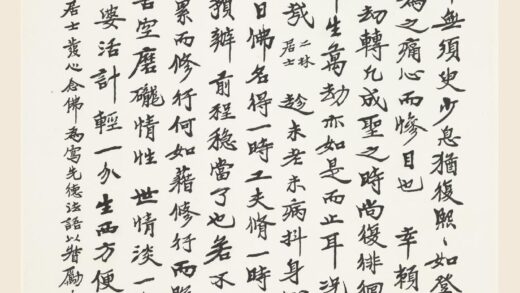 中無須臾少息猶復熙〻如登
為之痛心而慘目也 幸賴
劫轉凡成聖之時尚復徘徊
千生萬劫亦如是而止耳況
哉 二林居士 趁未老未病抖身
日佛名得一時工夫脩一時
預辦前程穩當了也若不
累而修行何如藉修行而
苦空磨礲情性世情淡一
婆活計輕一分生西方便
居士發心念佛為寫先德法語以勵